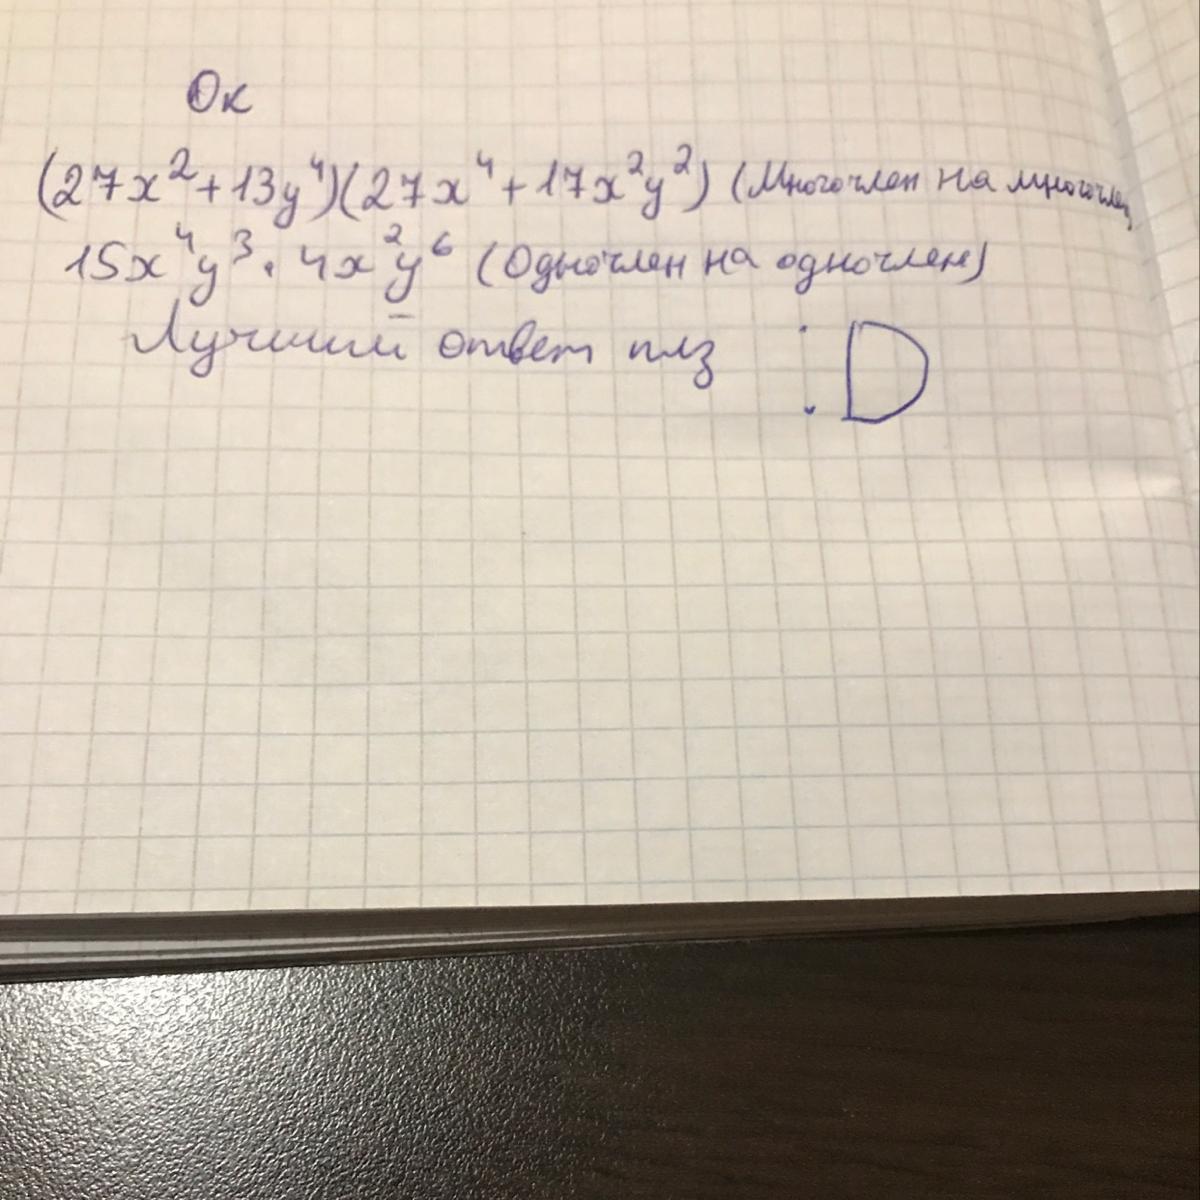 Ок
(27x²+13y⁴)(27x⁴+17x²y²) (Многочлен на многочлен
15x⁴y³·4x²y⁶ (Одночлен на одночлен)
Лучший ответ плз :D